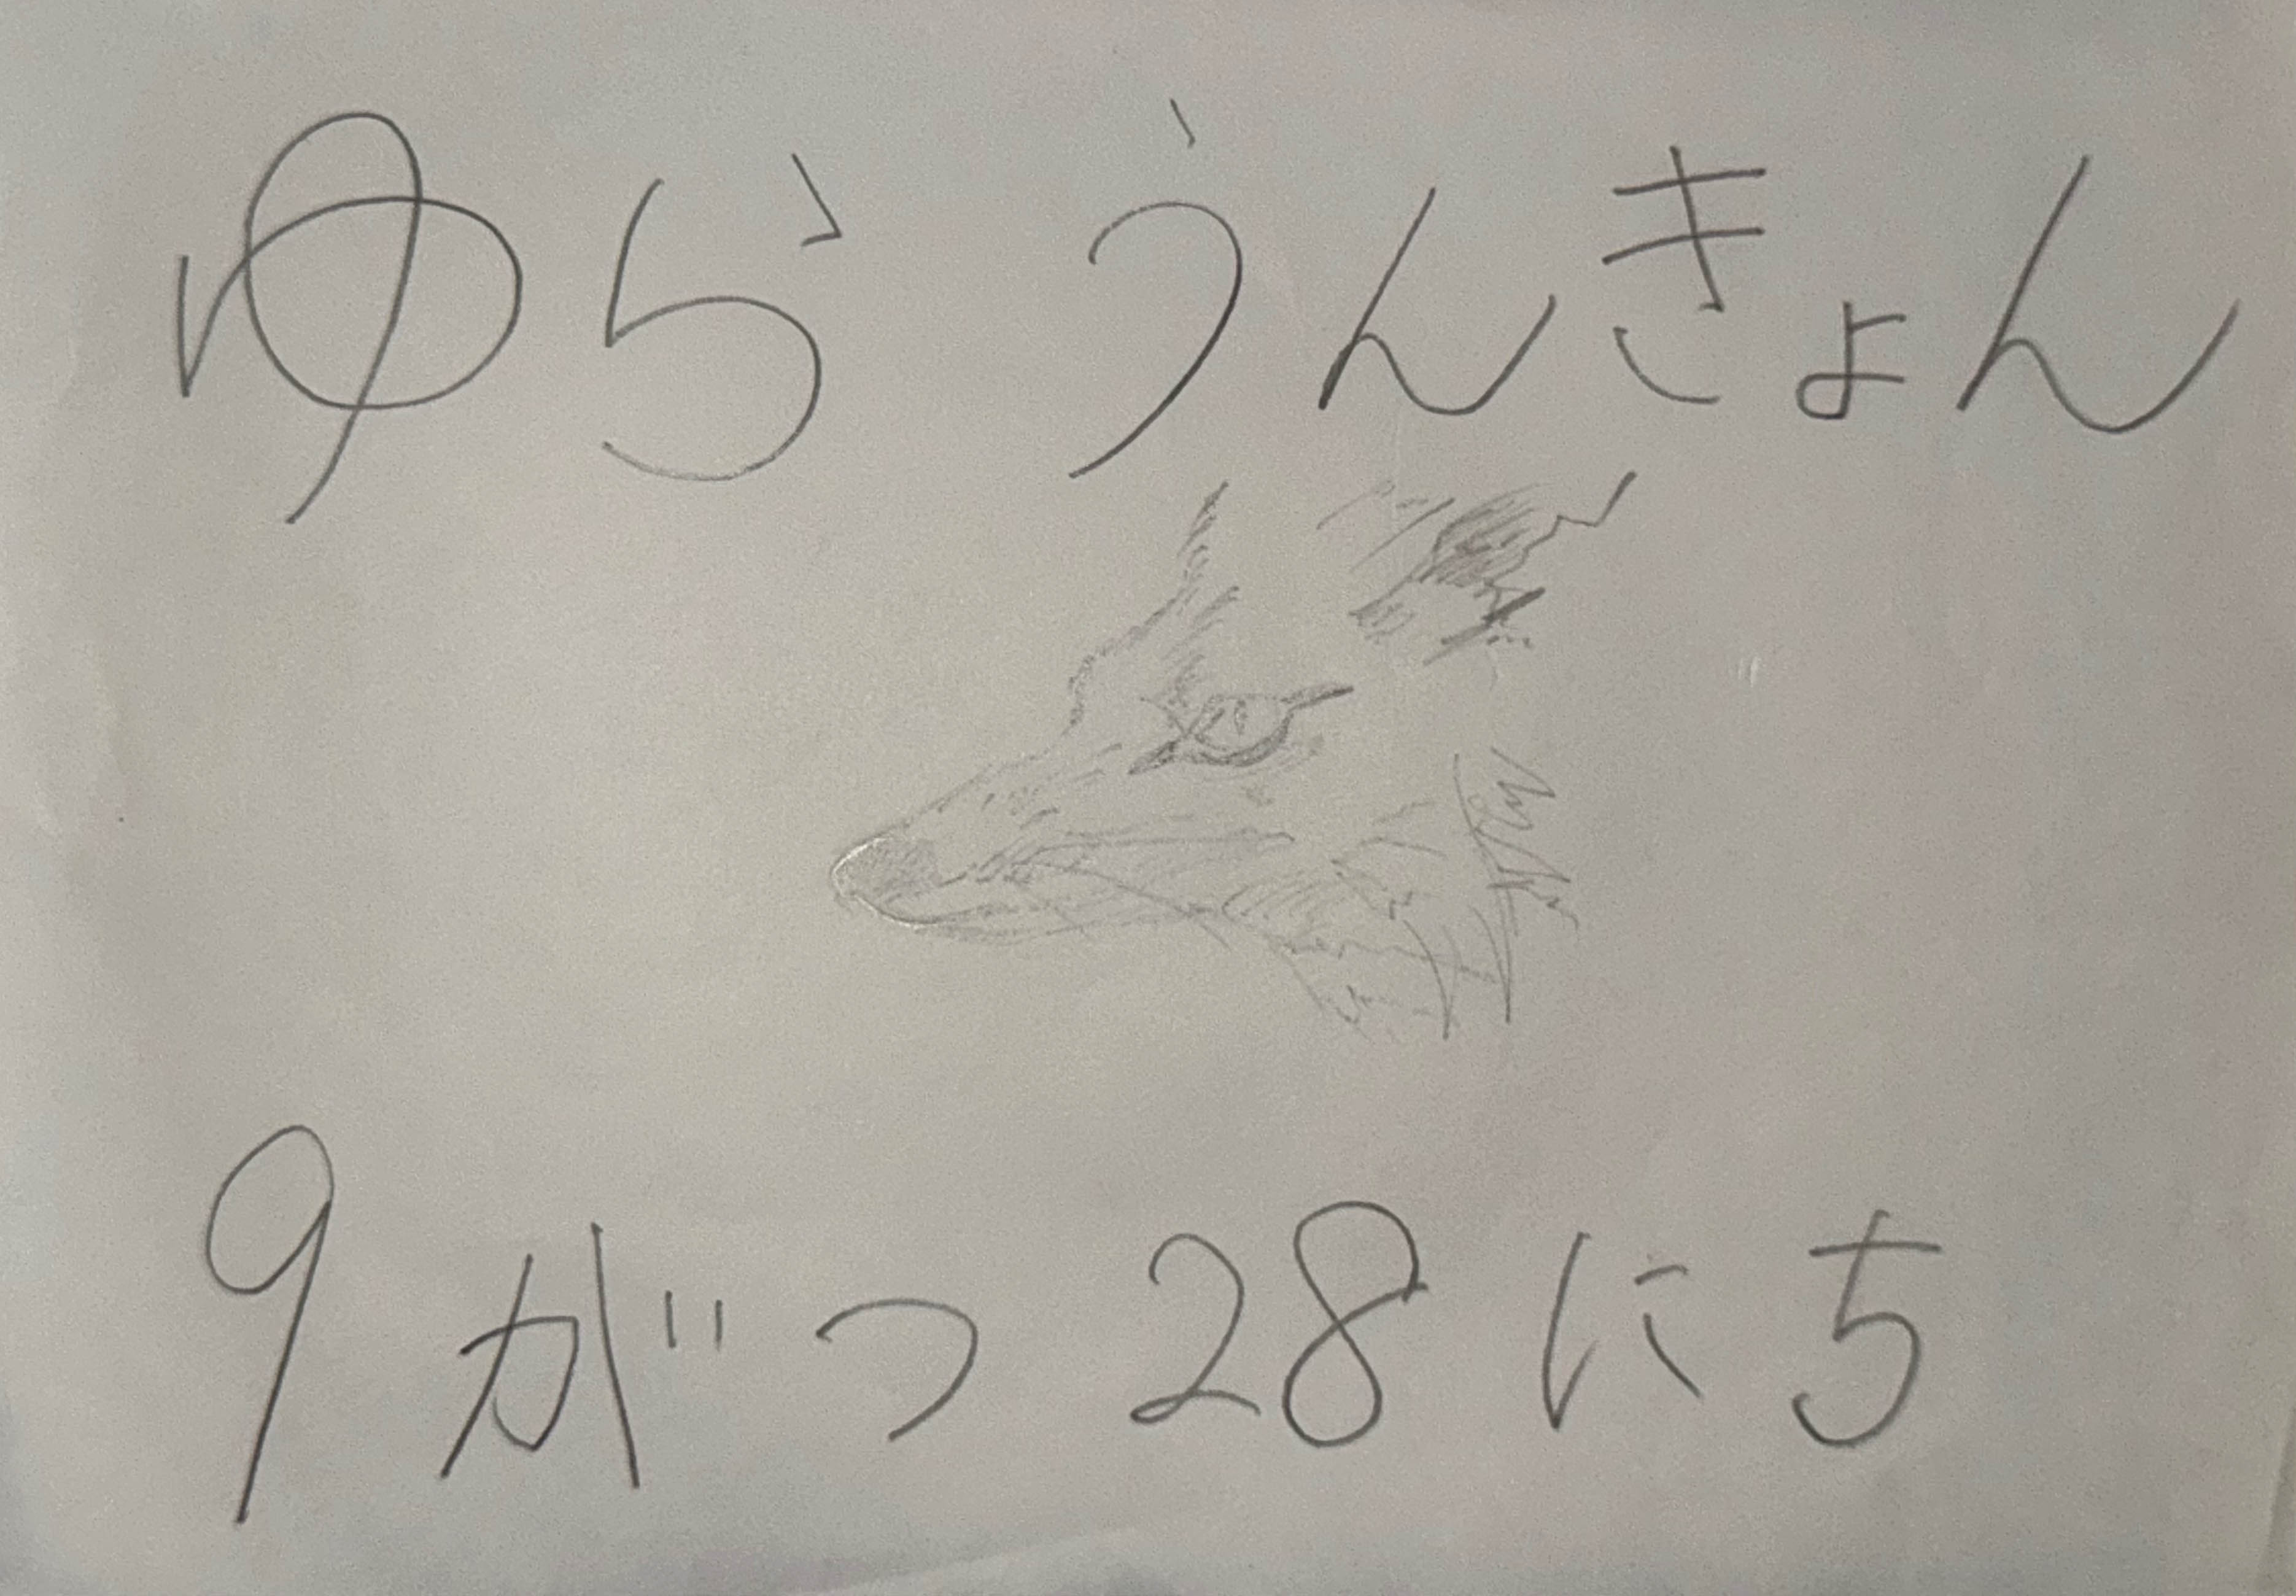 ゆら うんきょん
9がつ 28にち